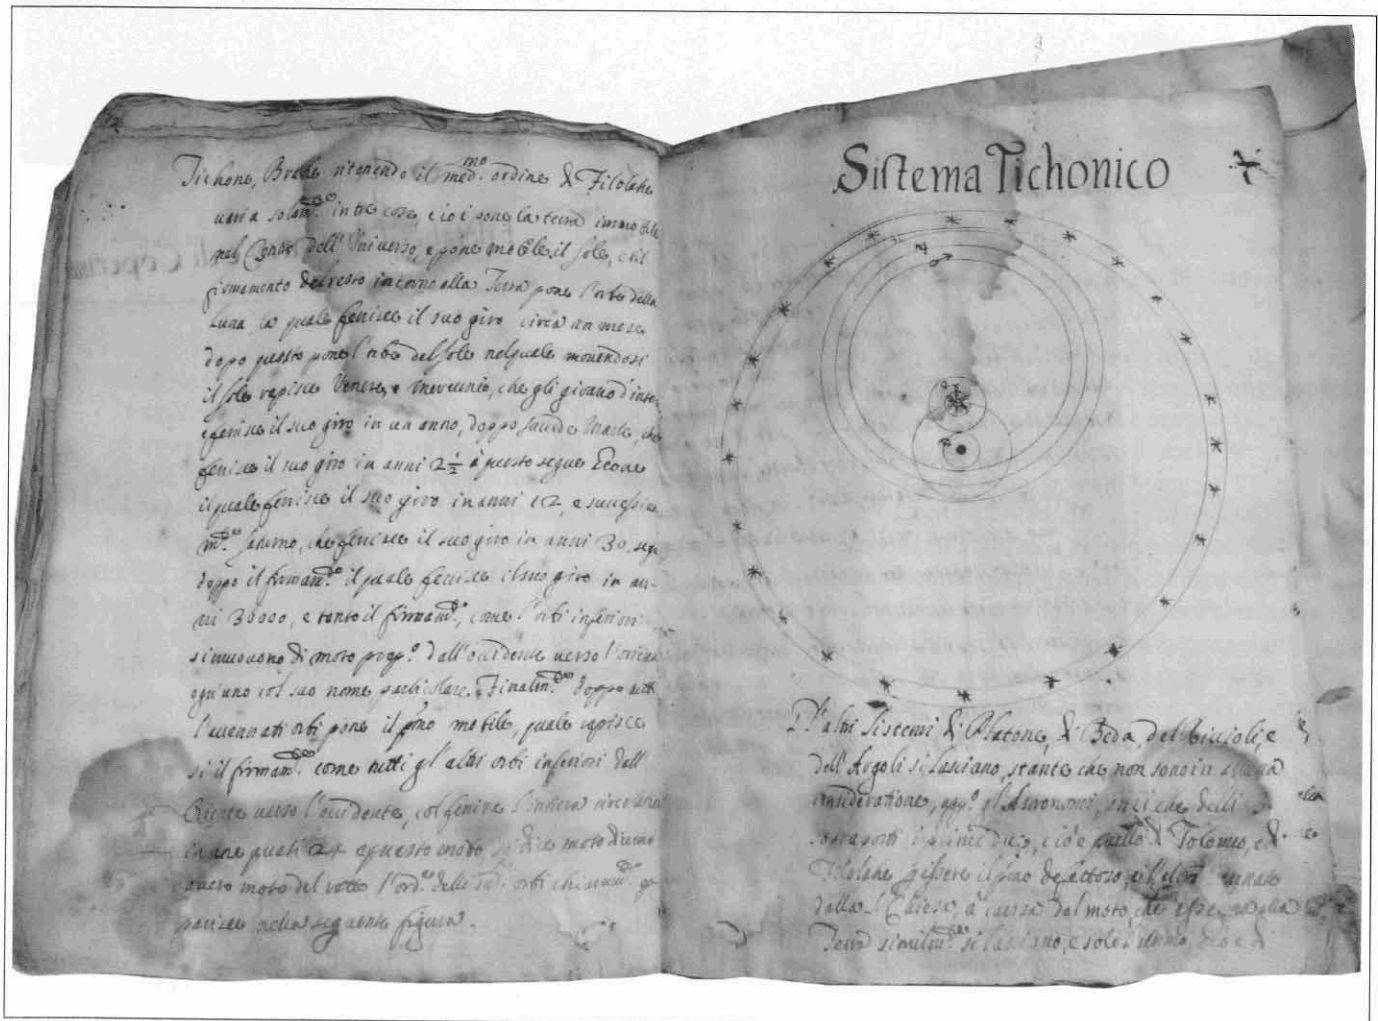 Tichone, Brahe ritenendo il med.mo ordine di Filolahe
varia solam.te in tre cose, cioè pone la terra immobile
nel Centro dell'Universo, e pone mobile il sole, e il
firmamento del resto intorno alla Terra pone l'orbe della
Luna, la quale fenisce il suo giro circa un mese
dopo questo pone l'orbe del sole nel quale movendosi
il sole rapisce Venere, e Mercurio, che gli girano d'into
e fenisce il suo giro in un anno, doppo Marte, che
fenisce il suo giro in anni 2½ à questo segue Giove
il quale fenisce il suo giro in anni 12, e successiva
m.te Saturno, che fenisce il suo giro in anni 30, segu
doppo il firmam.to il quale fenisce il suo giro in an-
ni 30000, e tanto il firmam.to, come l'orbi inferiori
si muovono di moto prop.o dall'occidente verso l'oriente
ogn'uno col suo nome particolare. Finalm.te doppo tutti
l'accennati orbi pone il p.mo mobile, quale rapisce
si il firmam.to come tutti gl'altri orbi inferiori dall'
Oriente verso l'occidente, col fenire l'intiera
in ore quasi 24 e questo modo si dice moto diurno
overo moto del ratto l'ord.e delli sud. orbi
parisce nella seguente figura.
Sistema Tichonico
♄ ♃
♂
Gl'altri sistemi di Platone, di Beda, del Ricioli, e
dell'Argoli si lasciano, stante che non sono in alcuna
consideratione, app.o gl'Astronomi, anzi che delli
sopraposti i primi due, cioè quello di Tolomeo, e di
Filolahe essere il p.mo defettoso, e l'altro
dalla S. Chiesa, à causa del moto, che alla
Terra similm.te si lasciano, e solo l'ultimo